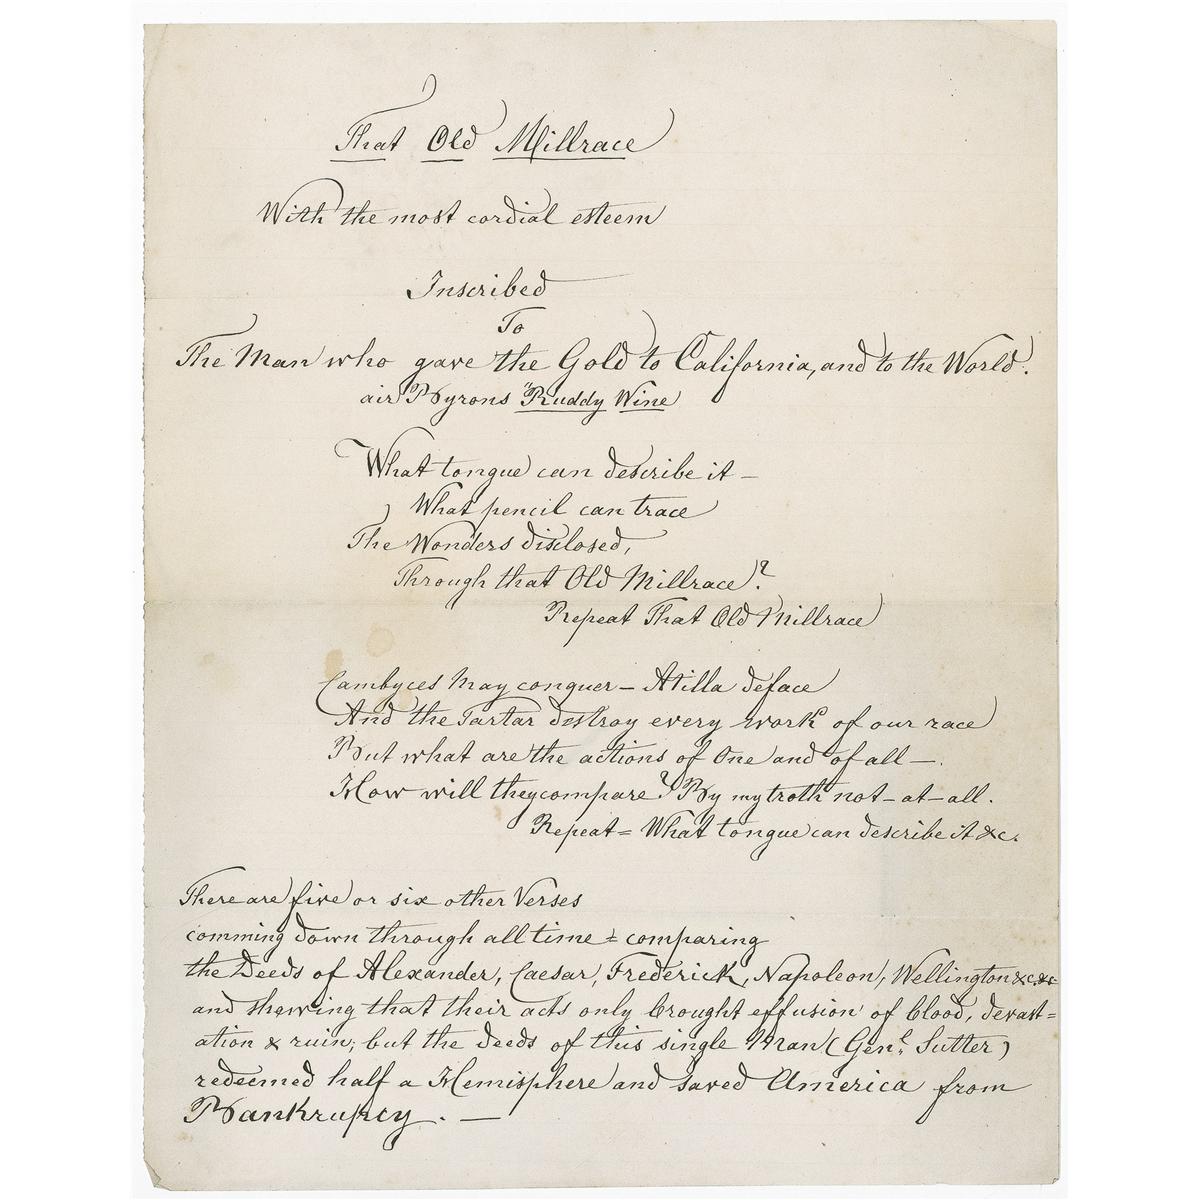 That Old Millrace
With the most cordial esteem
Inscribed
To
The Man who gave the Gold to California, and to the World.
air Byrons "Ruddy Wine
What tongue can describe it –
What pencil can trace
The Wonders disclosed,
Through that Old Millrace?
Repeat That Old Millrace
Cambyces May conquer – Atilla deface
And the Tartar destroy every work of our race
But what are the actions of One and of all –.
How will they compare? By my troth not – at – all.
Repeat = What tongue can describe it &c.
There are five or six other Verses
comming down through all time = comparing
the Deeds of Alexander, Caesar, Frederick, Napoleon, Wellington &c. &c
and shewing that their acts only brought effusion of blood, devast=
ation & ruin; but the deeds of this single Man (Genl. Sutter)
redeemed half a Hemisphere and saved America from
Bankrupcy. —